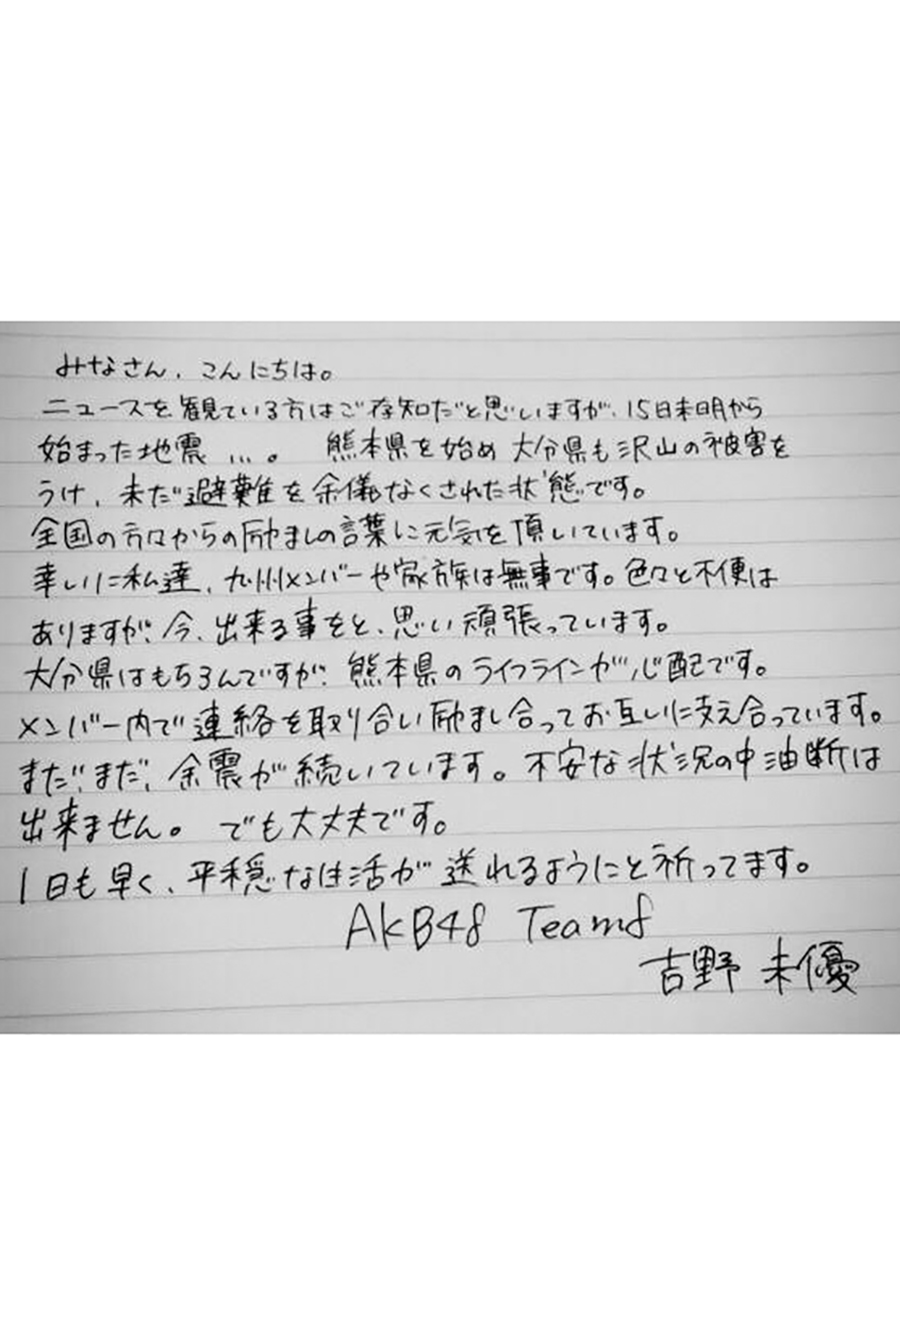 みなさん、こんにちは。
ニュースを観ている方はご存知だと思いますが、15日未明から
始まった地震…。 熊本県を始め大分県も沢山の被害を
うけ、未だ避難を余儀なくされた状態です。
全国の方々からの励ましの言葉に元気を頂いています。
幸いに私達、九州メンバーや家族は無事です。色々と不便は
ありますが、今、出来る事をと、思い頑張っています。
大分県はもちろんですが、熊本県のライフラインが心配です。
メンバー内で連絡を取り合い励まし合ってお互いに支え合っています。
まだ、まだ、余震が続いています。不安な状況の中油断は
出来ません。 でも大丈夫です。
1日も早く、平穏な生活が送れるようにと祈ってます。
AKB48 Team8
吉野 未優